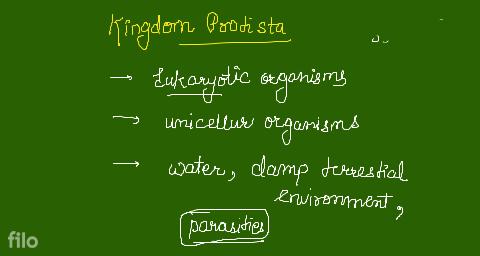 Kingdom Prodista
→ Eukaryotic organisms
→ unicellur organisms
→ water, damp terrestial
environment,
parasities
filo